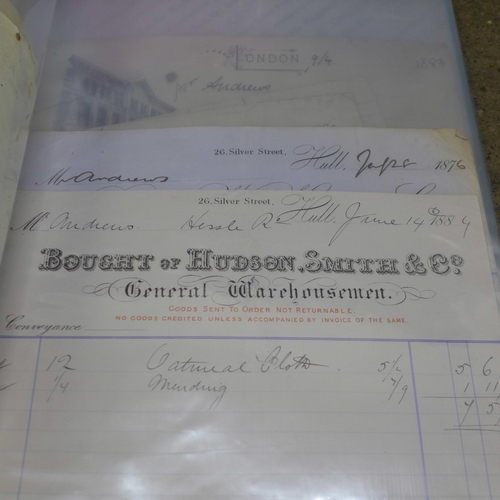 LONDON 9/4
Mr Andrews
26, Silver Street, Hull, 1876
Mr Andrews
26, Silver Street,
Mr Andrews Hessle Rd Hull, June 14 1884
BOUGHT OF HUDSON, SMITH & Co.
General Warehousemen.
GOODS SENT TO ORDER NOT RETURNABLE.
NO GOODS CREDITED UNLESS ACCOMPANIED BY INVOICE OF THE SAME.
Conveyance
12 Oatmeal Cloth 5/2 5 6
1/4 Mending 1 11
7 5